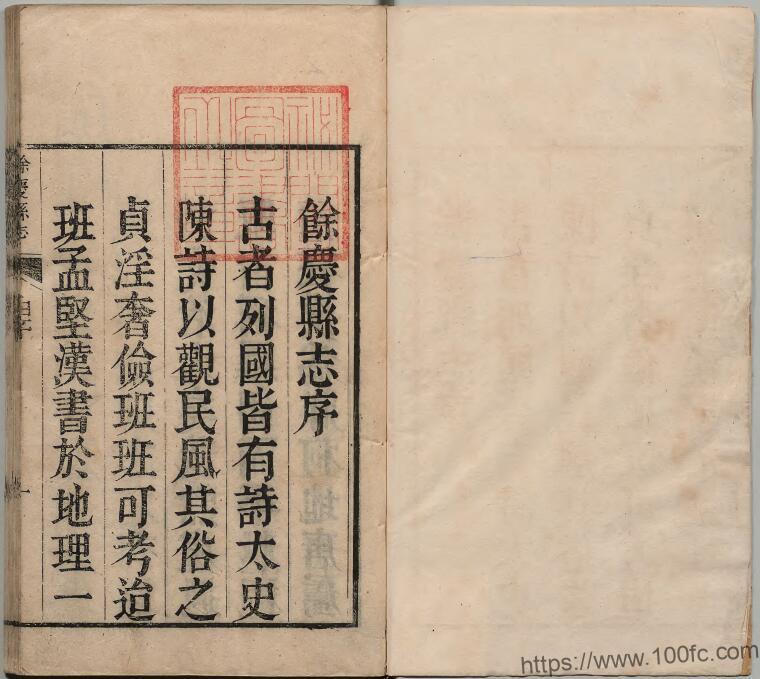 餘慶縣志序
古者列國皆有詩太史
陳詩以觀民風其俗之
貞淫奢儉班班可考迨
班孟堅漢書於地理一
餘慶縣志
https://www.100fc.com